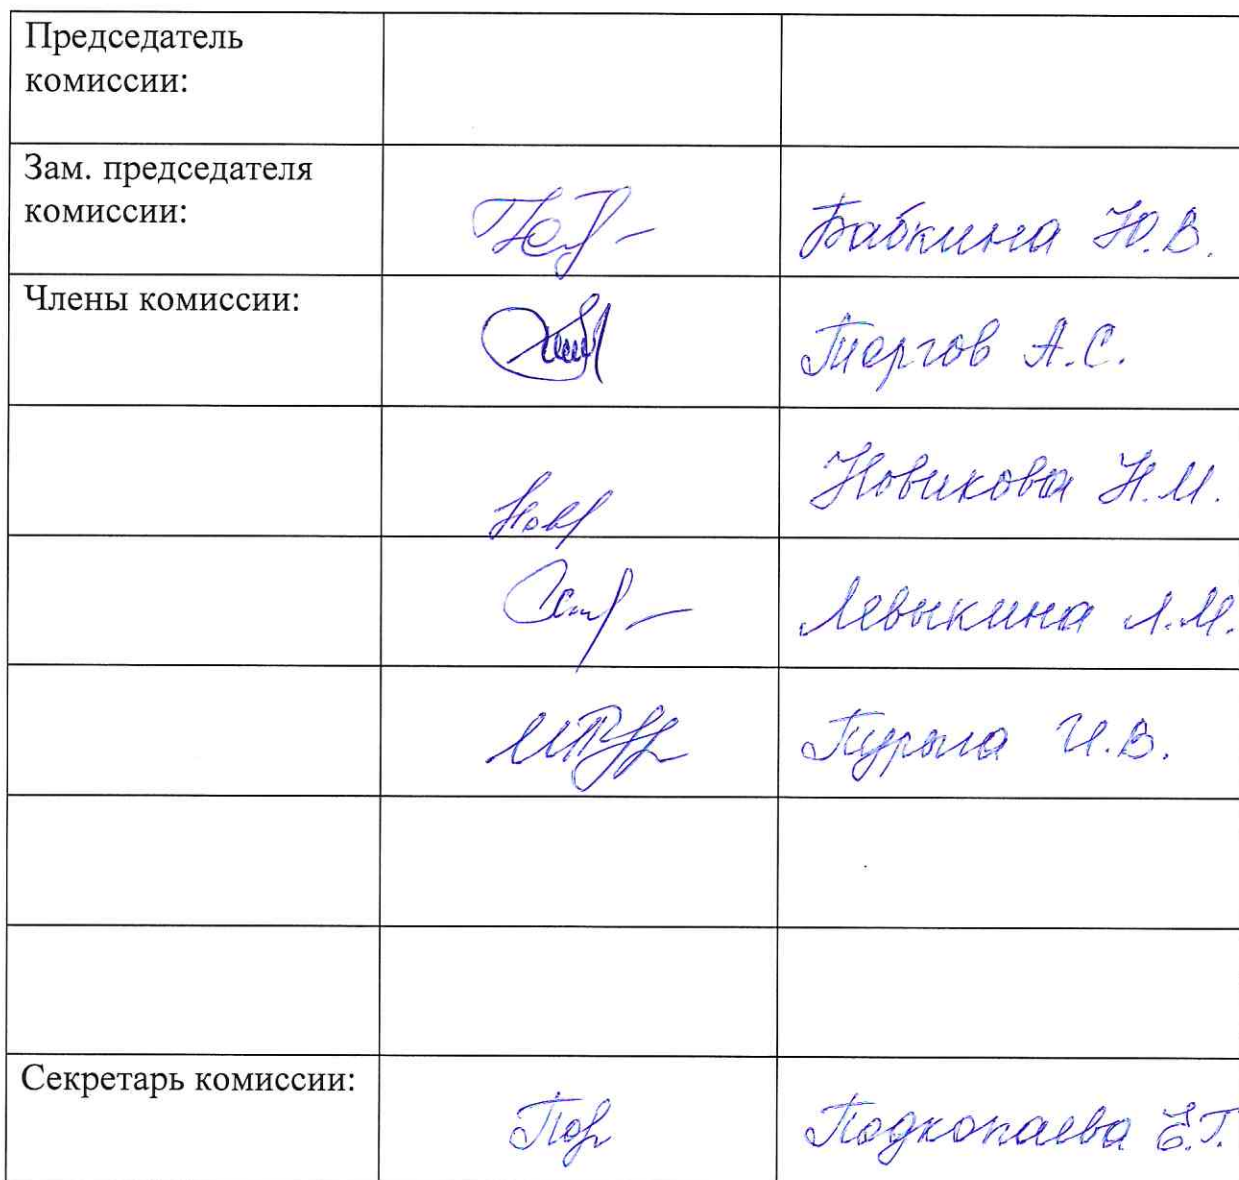 Председатель
комиссии:
Зам. председателя
комиссии:
Бабкина Ю.В.
Члены комиссии:
А.С.
Новикова Н.М.
Левыкина Л.М.
И.В.
Секретарь комиссии:
Подкопаева Е.Г.